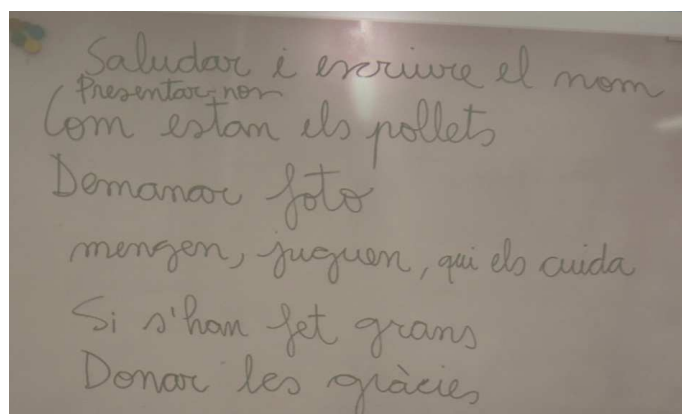 Saludar i escriure el nom
Presentar-nos
Com estan els pollets
Demanar foto
mengen, juguen, qui els cuida
Si s'han fet grans
Donar les gràcies